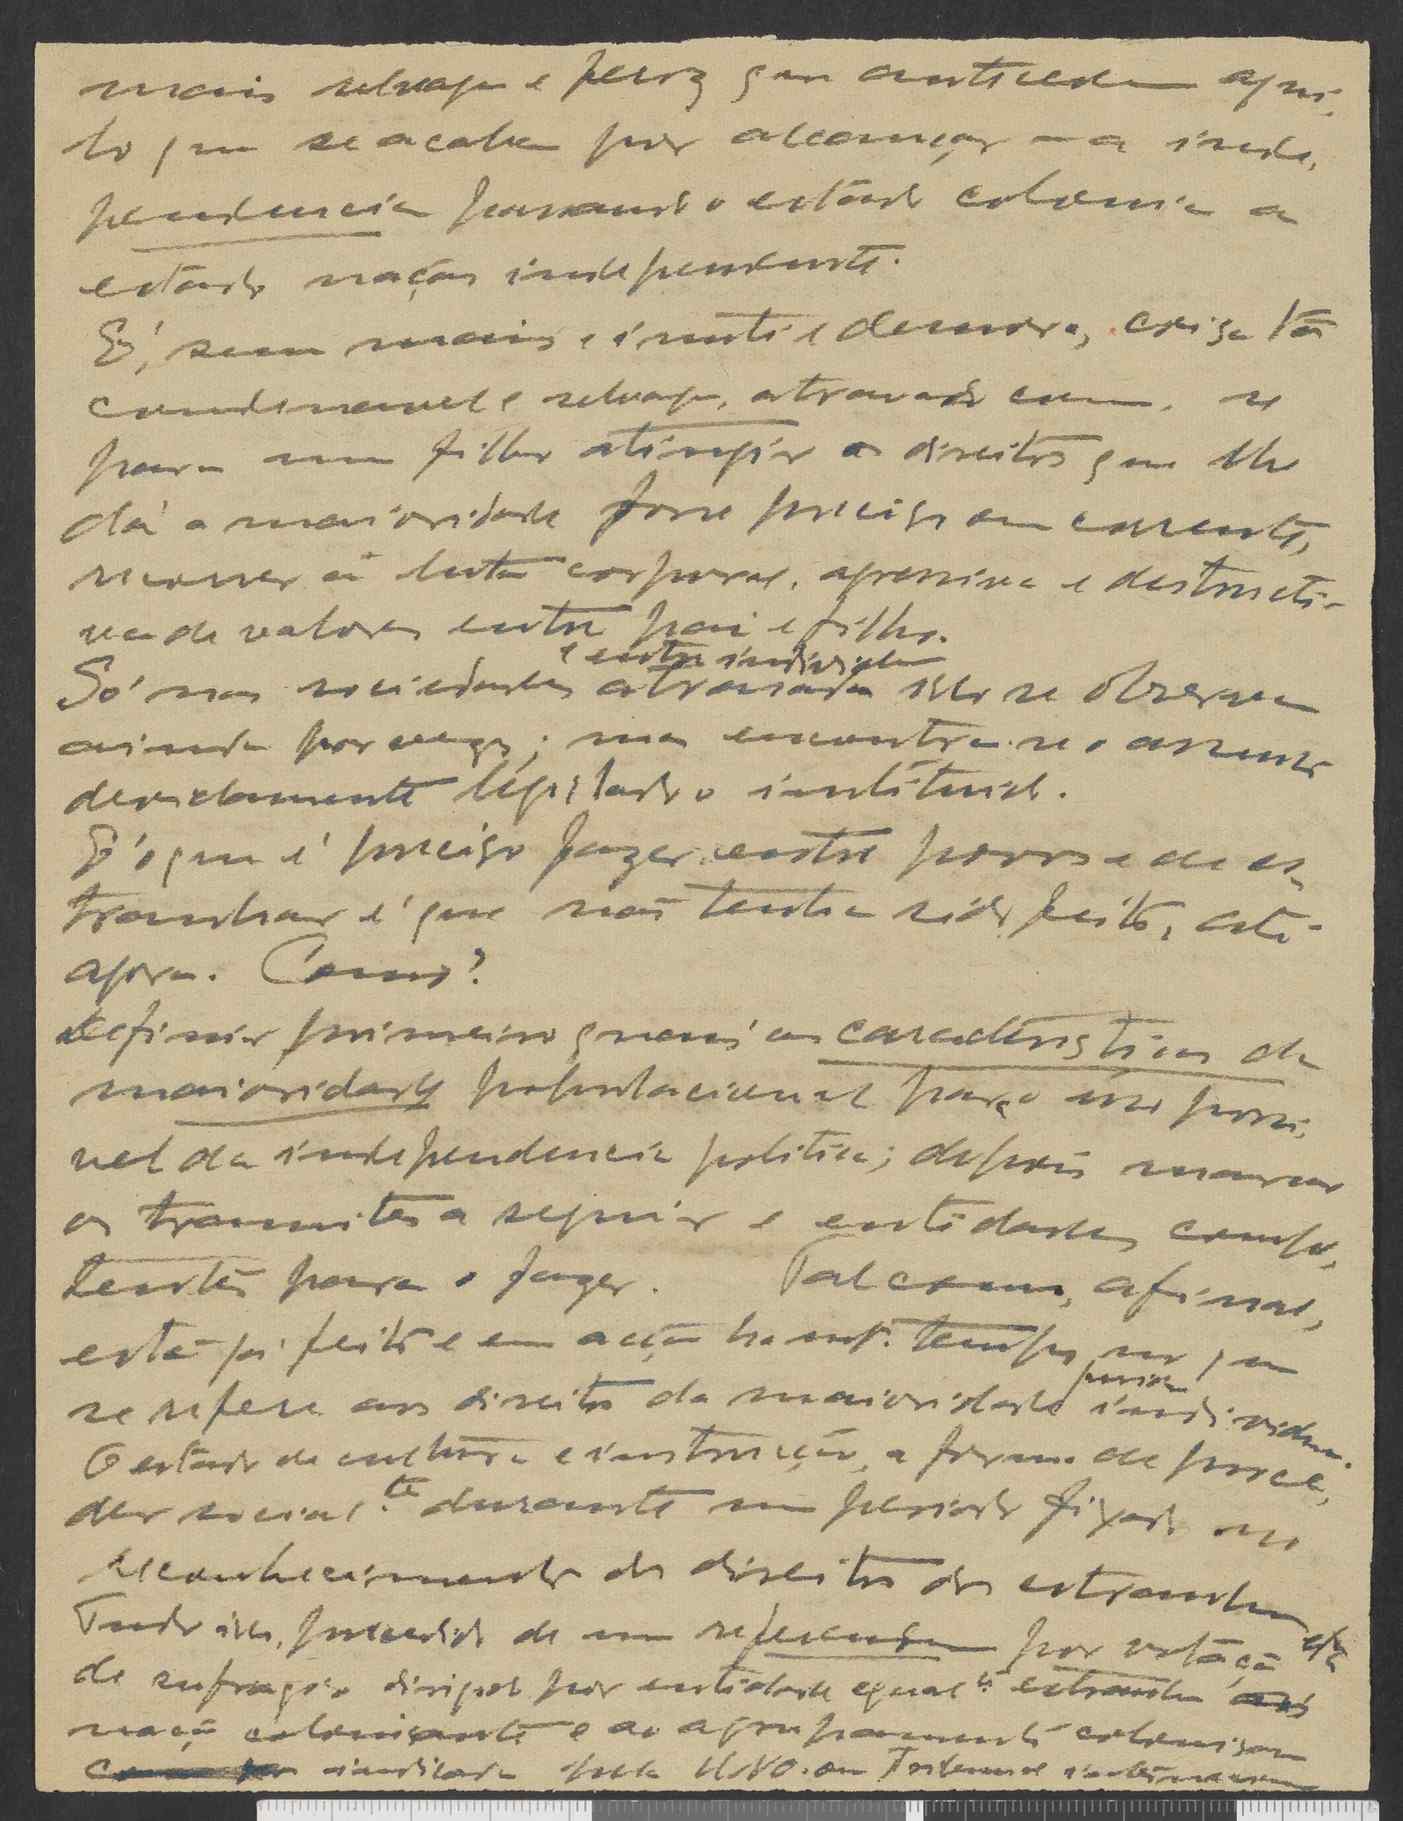 mais selvagem e feroz que antecedem aqui-
lo que se acaba por alcançar — a inde-
pendencia passando o estado colonia a
estado nação independente.
É, sem mais e inutil demora, coisa tão
condenavel e selvagem, atrasada como, se
para um filho atingir os direitos que lhe
dá a maioridade fosse preciso ou corrente,
recorrer á luta corporal, agressiva e destructi-
va de valores entre pai e filho.
e entre individuos
Só nas sociedades atrasadas isto se observa
ainda por vezes; mas encontra-se o assunto
devidamente legislado o instituido.
É o que é preciso fazer entre povos e de es-
tranhar é que não tenha sido feito, até
agora. Como?
Definir primeiro quais as caracteristicas da
maioridade populacional para o uso possi-
vel da independencia politica; depois marcar
os tramites a seguir e entidades compe-
tentes para o fazer. Tal como, afinal,
está já feito e em acção ha mt. tempo no que
se refere aos direitos da maioridade juridica individual.
O estado de cultura e instrucção, a forma de proce-
der social.te durante um periodo fixado no
reconhecimento do direito dos estranhos
Tudo isto, precedido de um referendum por votação
de sufragio dirigido por entidade egual.te estranha
nação colonisante e ao agrupamento colonisado
indicada pela UNO. ou Tribunal internacional